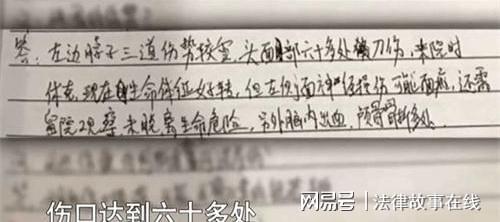 答：左边脖子三道伤势较重，头面部六十多处被刀伤，来院时
休克，现在生命体征好转，但左侧面神经损伤可能面瘫，还需
留院观察未脱离生命危险，另外脑内出血，颅骨骨折多处。
伤口达到六十多处
网易号 | 法律故事在线